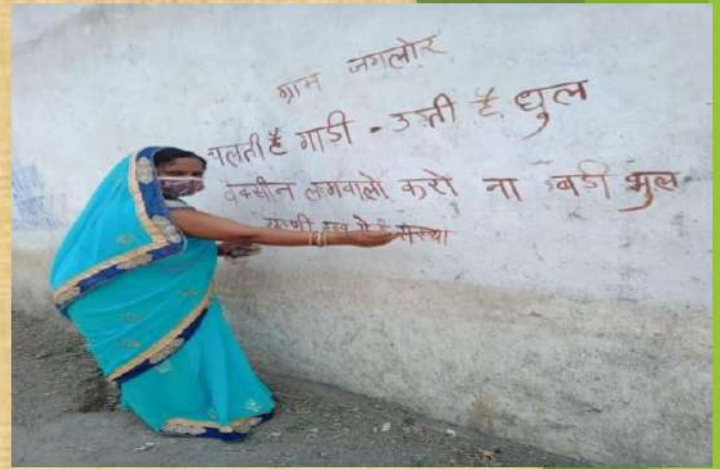 ग्राम जगलोर
चलती है गाडी - उडती है धुल
वेक्सीन लगवालो करो ना बडी भुल
संस्था